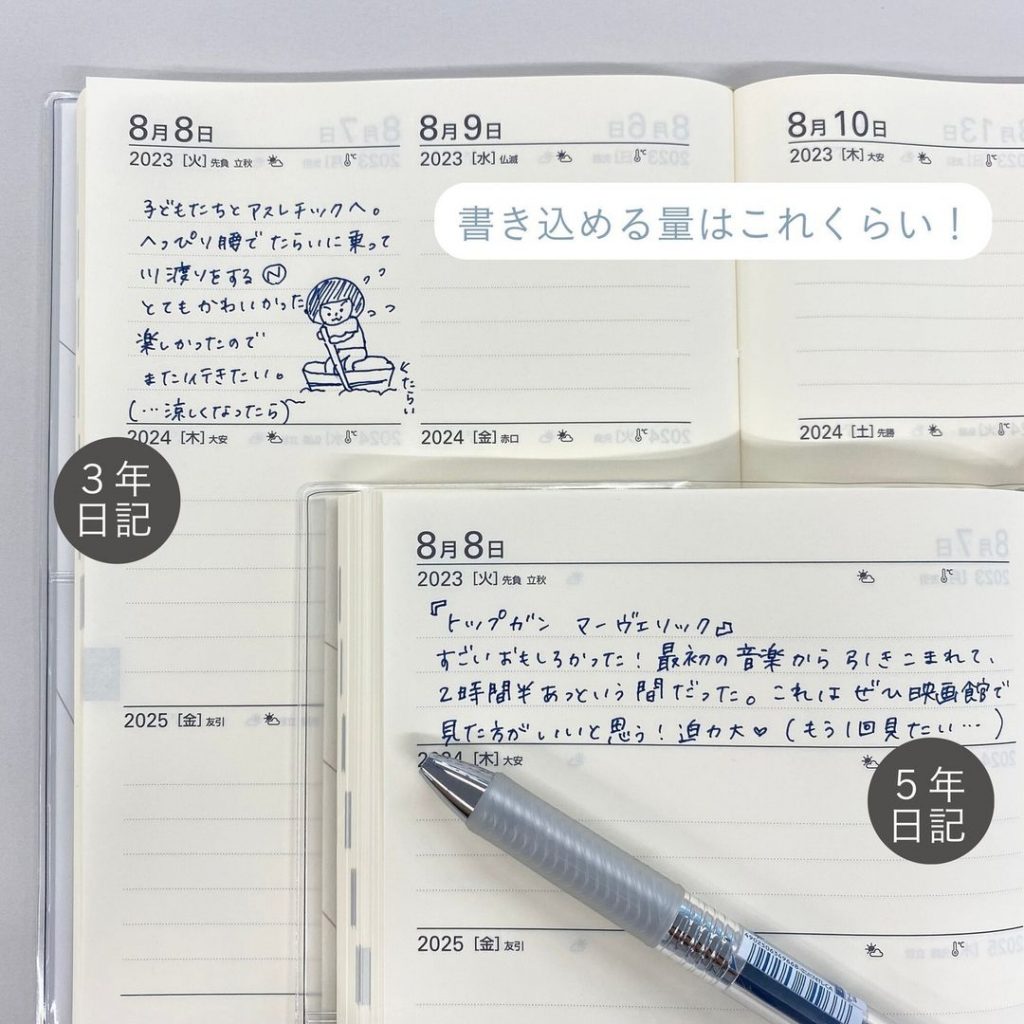 8月8日
2023 [火] 先負 立秋
℃
子どもたちとアスレチックへ。
へっぴり腰でたらいに乗って
川渡りをする
とてもかわいかった
楽しかったので
また行きたい。
(…涼しくなったら)
←たらい
2024 [木] 大安
℃
2025 [金] 友引
8月9日
2023 [水] 仏滅
℃
2024 [金] 赤口
℃
8月10日
2023 [木] 大安
℃
2024 [土] 先勝
℃
書き込める量はこれくらい！
3年
日記
8月8日
2023 [火] 先負 立秋
℃
『トップガン マーヴェリック』
すごいおもしろかった！最初の音楽から引きこまれて、
2時間半あっという間だった。これはぜひ映画館で
見た方がいいと思う！迫力大♡(もう1回見たい…)
2024 [木] 大安
2025 [金] 友引
℃
5年
日記